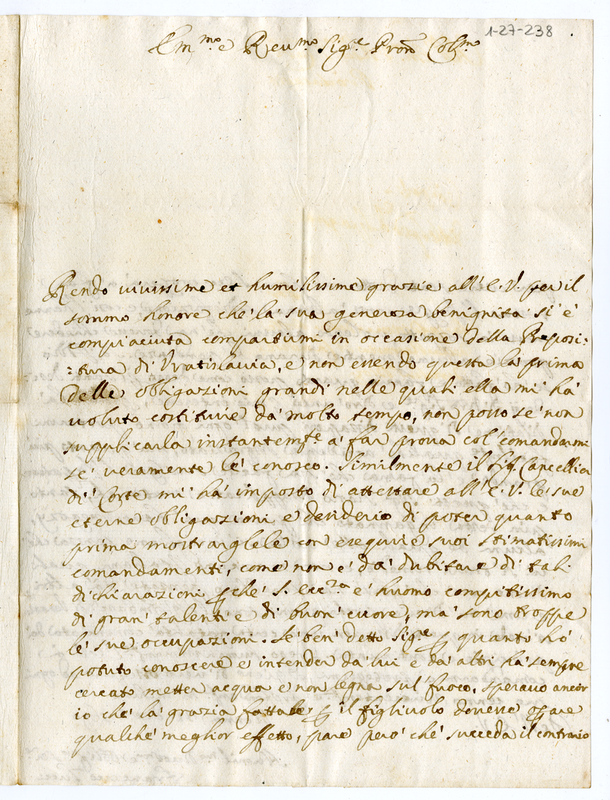 1-27-238
Em.mo e Reu.mo Sig.e Pron Col.mo
Rendo viuissime et humilissime grazie all'E.V. per il
sommo honore che la sua generosa benignità si è
compiaciuta compartirmi in occasione della Preposi:
:tura di Vratislauia, e non essendo questa la prima
delle obligazioni grandi nelle quali ella mi hà
uoluto costituire dà molto tempo, non posso se non
supplicarla instantem.te à far proua col comandarmi
se ueramente le conosco. Similmente il Sig. Cancelliere
di Corte mi hà imposto di attestare all'E.V. le sue
eterne obligazioni e desiderio di poter quanto
prima mostrarglele con eseguire suoi stimatissimi
comandamenti, come non è dà dubitare di tali
dichiarazioni p che S. Ecc.za è huomo compitissimo
di gran talenti e di buon cuore, mà sono troppe
le sue occupazioni. Se ben detto Sig.e p quanto hò
potuto conoscere e intender dà lui e dà altri hà sempre
cercato metter acqua e non legna sul fuoco, sperauo ancor
io che la grazia fattale p il figliuolo douesse oprare
qualche meglior effetto, pare però che succeda il contrario